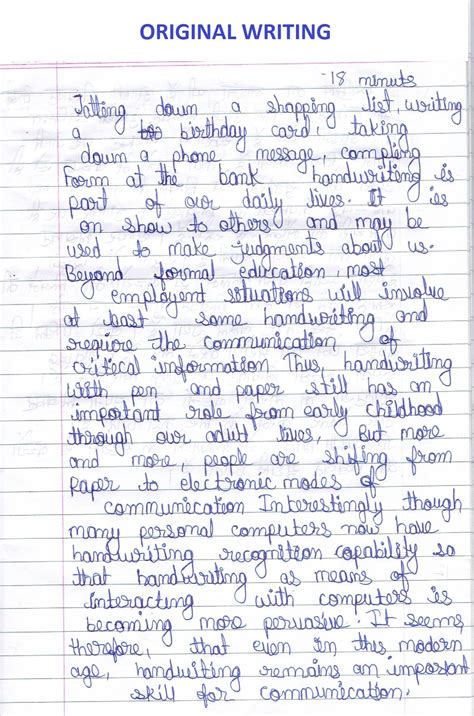 ORIGINAL WRITING
-18 minuts
Jatting down a shopping list, writing
a birthday card, taking
down a phone message, compleing
form at the bank handwriting is
part of our daily lives. It is
on show to others and may be
used to make judgments about us.
Beyond formal education, most
employent situations will involve
at least some handwriting and
require the communication of
critecal information Thus, handwriting
with pen and paper still has an
important role from early childhood
through our adult lives, But more
and more, people are shifing from
Paper to electronic modes of
communication Interestingly though
many personal computers now have
handwriting recognition capability so
that handwriting as means of
interacting with computers is
becoming more pervasive. It seems,
therefore, that even in this modern
age, handwiting remains an important
skill for communication.